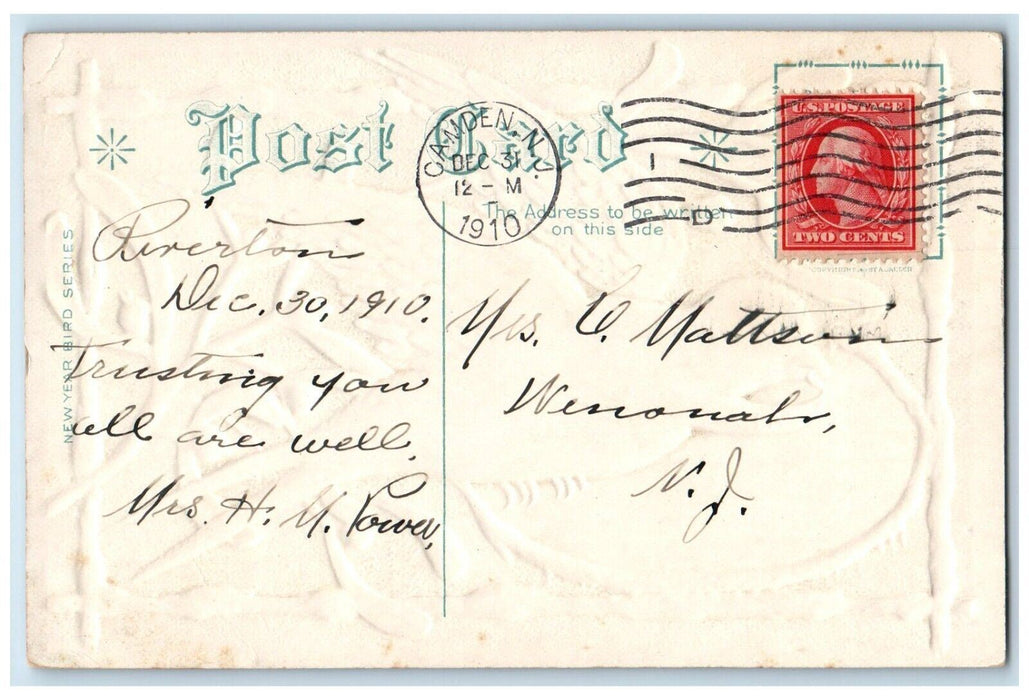 Post Card
CAMDEN, N.J.
DEC 31
12 - M
1910
1
D
U.S. POSTAGE
TWO CENTS
The Address to be written
on this side
NEW YEAR BIRD SERIES
Riverton
Dec. 30, 1910.
Trusting you
all are well.
Mrs. H. M. Power,
Mrs. C Mattson
Wenonah,
N.J.